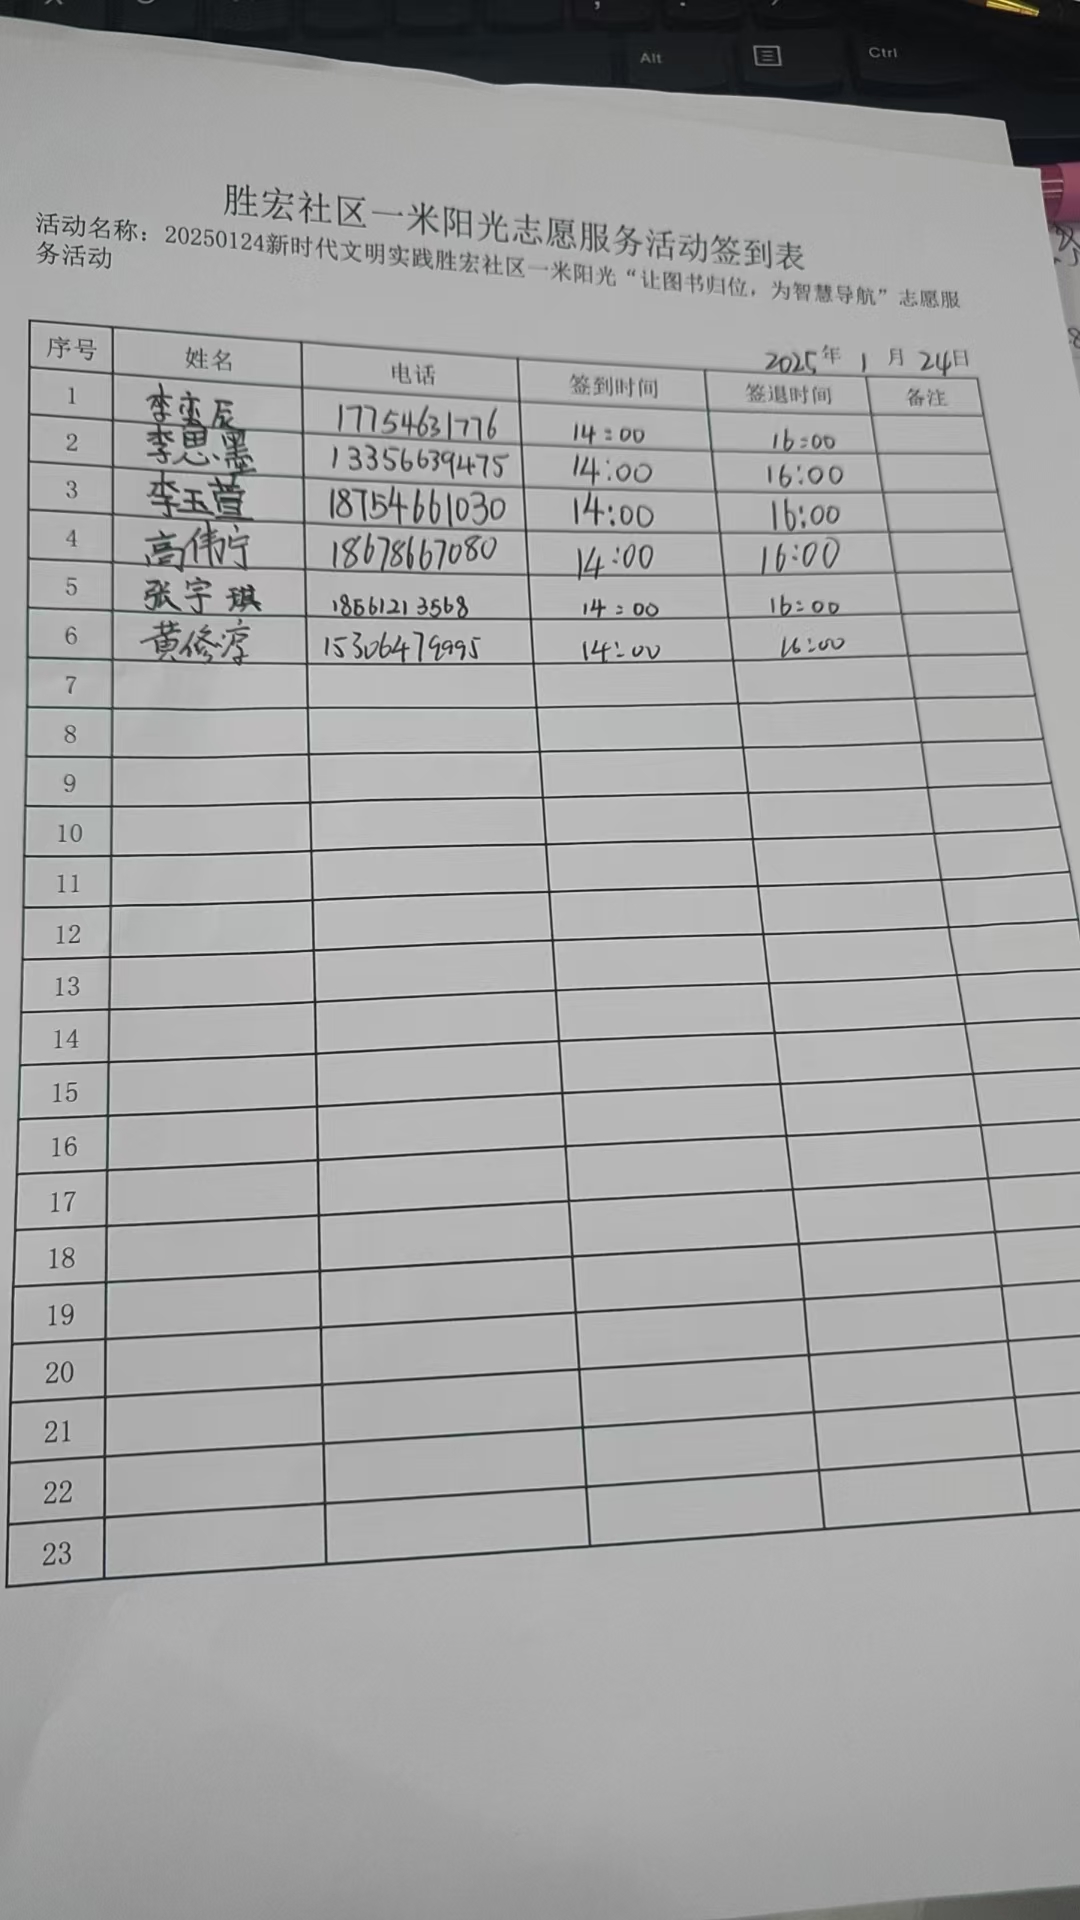 Alt Ctrl
胜宏社区一米阳光志愿服务活动签到表
活动名称：20250124新时代文明实践胜宏社区一米阳光“让图书归位，为智慧导航”志愿服
务活动
2025年 1 月 24日
序号 姓名 电话 签到时间 签退时间 备注
1 李奕辰 17754631776 14:00 16:00
2 李思墨 13356639475 14:00 16:00
3 李玉萱 18754661030 14:00 16:00
4 高伟宁 18678667080 14:00 16:00
5 张宇琪 18561213568 14:00 16:00
6 黄修淳 15306479995 14:00 16:00
7
8
9
10
11
12
13
14
15
16
17
18
19
20
21
22
23